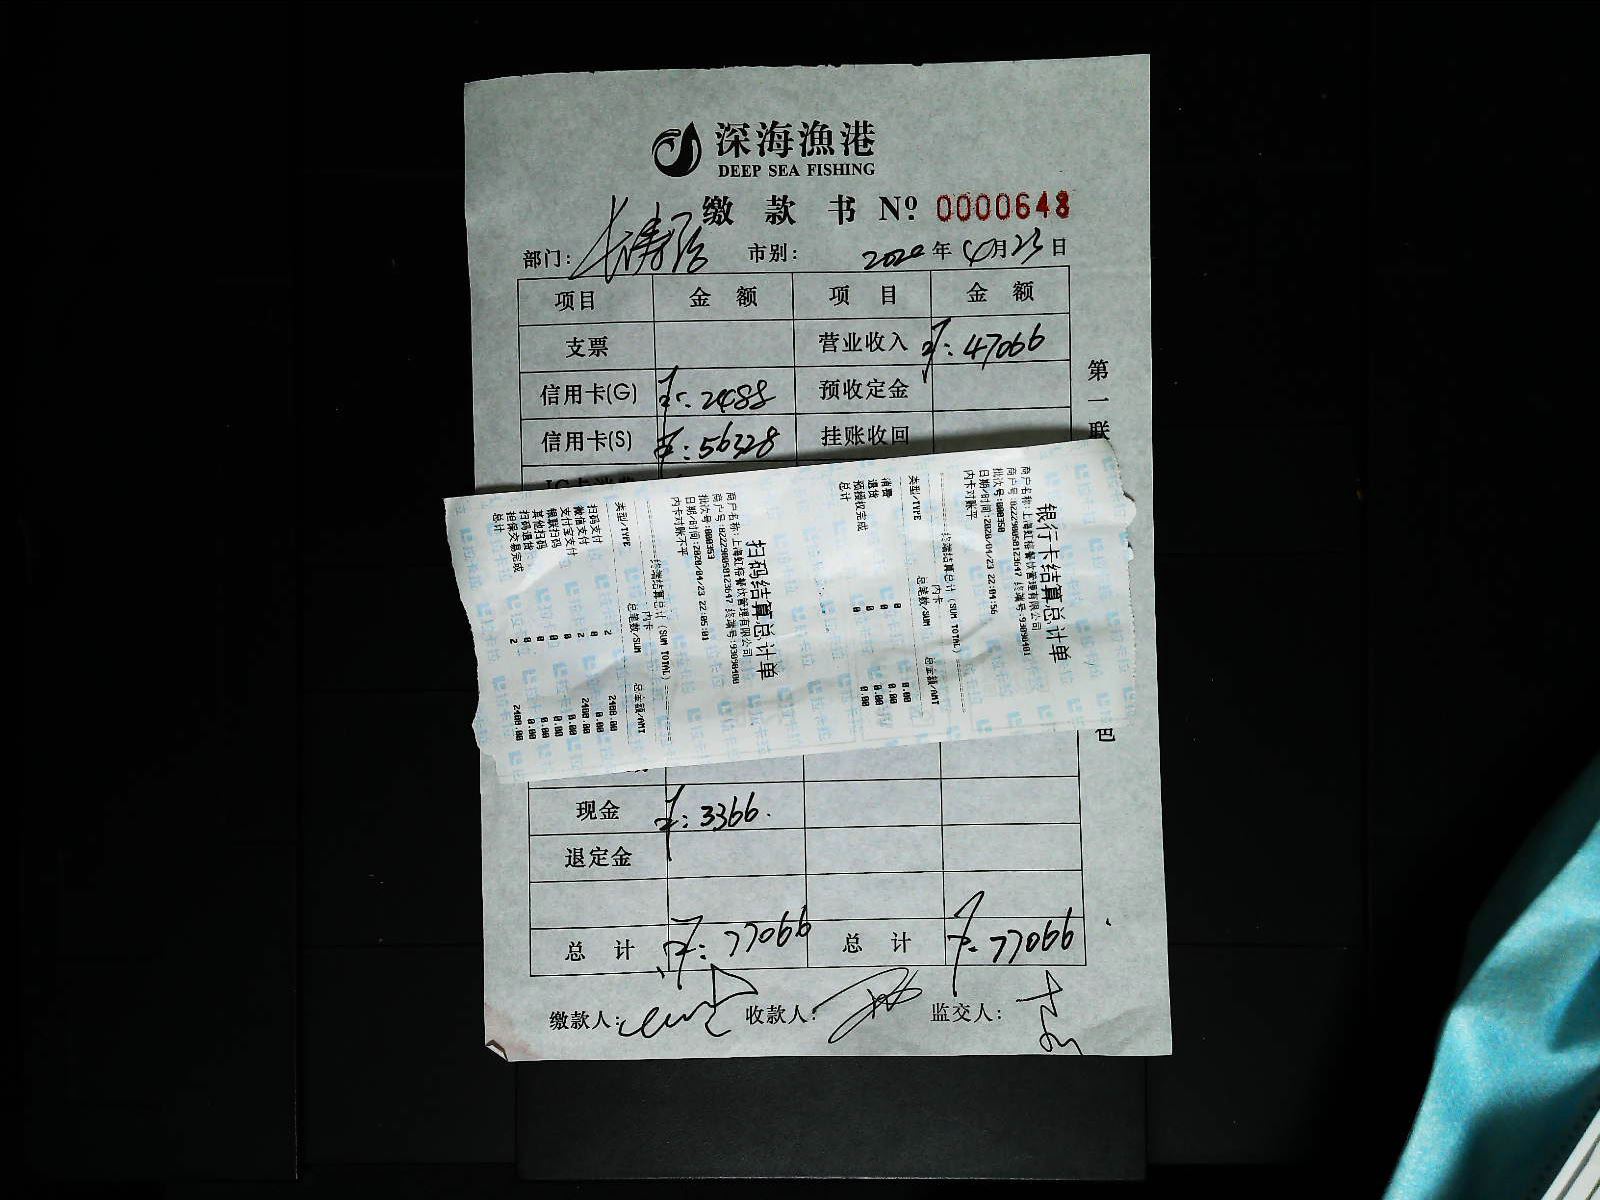 深海漁港
DEEP SEA FISHING
缴款书 Nº 0000648
部门: 市别: 2020年4月23日
项目 金额 项目 金额
支票 营业收入 ¥:47066
信用卡(G) ¥:2488 预收定金
信用卡(S) ¥:56328 挂账收回
第一联
银行卡结算总计单
商户名称:上海虹棕餐饮管理有限公司
商户号:822290058123647 终端号:93090401
批次号:000350
日期/时间:2020/04/23 22:04:56
内卡对账平
终端结算总计(SUM TOTAL)
内卡
类型/TYPE 总笔数/SUM 总金额/AMT
消费 0 0.00
退货 0 0.00
预授权完成 0 0.00
总计 0 0.00
扫码结算总计单
商户名称:上海虹棕餐饮管理有限公司
商户号:822290058123647 终端号:93090400
批次号:000353
日期/时间:2020/04/23 22:05:01
内卡对账不平
终端结算总计(SUM TOTAL)
内卡
类型/TYPE 总笔数/SUM 总金额/AMT
扫码支付 2 2488.00
微信支付 0 0.00
支付宝支付 2 2488.00
银联扫码 0 0.00
其他扫码 0 0.00
扫码退货 0 0.00
担保交易完成 0 0.00
总计 2 2488.00
现金 ¥:3366.
退定金
总计 ¥:77066 总计 ¥:77066
缴款人: 收款人: 监交人: